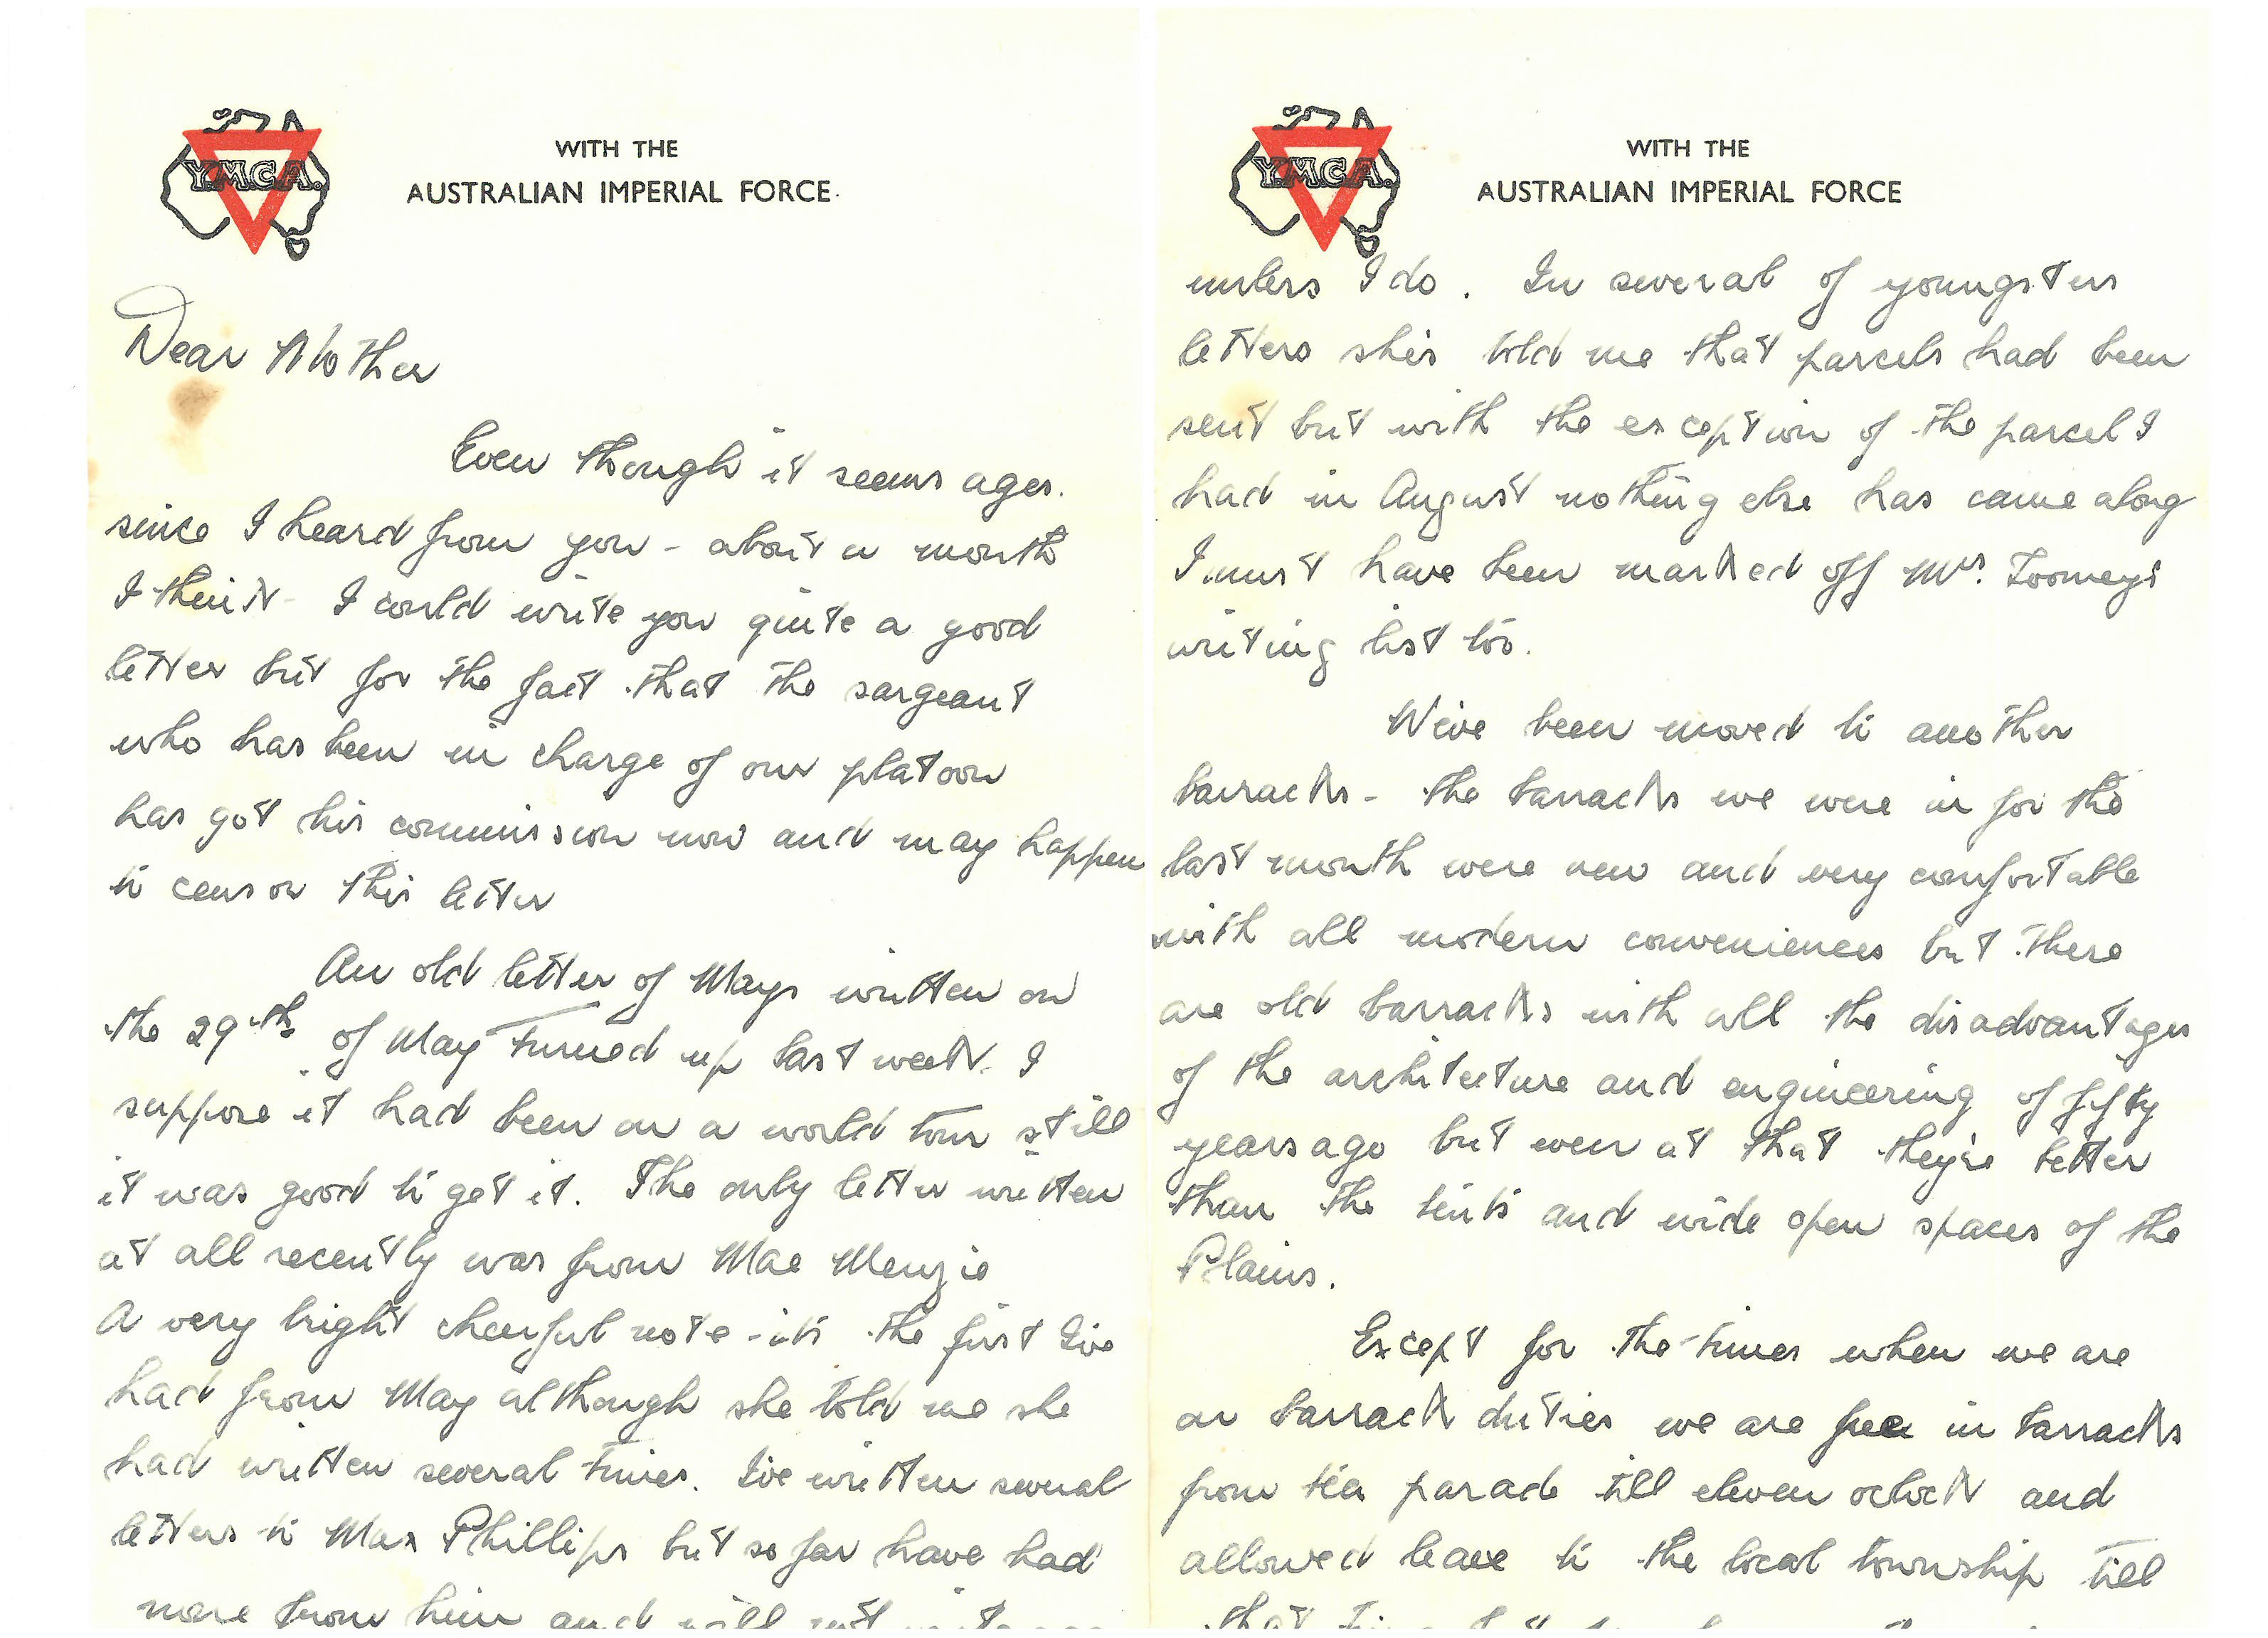 Y.M.C.A.
WITH THE
AUSTRALIAN IMPERIAL FORCE.
Dear Mother
Even though it seems ages.
since I heard from you - about a month
I think - I could write you quite a good
letter but for the fact that the sargeant
who has been in charge of our platoon
has got his commission now and may happen
to censor this letter
An old letter of Mays written on
the 29th of May turned up last week. I
suppose it had been on a world tour still
it was good to get it. The only letter written
at all recently was from Mae Menzie
A very bright cheerful note - its the first Ive
had from May although she told me she
had written several times. Ive written several
letters to Max Phillips but so far have had
none from him and will not
Y.M.C.A.
WITH THE
AUSTRALIAN IMPERIAL FORCE
unless I do. In several of youngsters
letters shes told me that parcels had been
sent but with the exception of the parcel I
had in August nothing else has come along
I must have been marked off Mrs. Toomeys
writing list too.
We've been moved to another
barracks - the barracks we were in for the
last month were new and very comfortable
with all modern conveniences but there
are old barracks with all the disadvantages
of the architecture and engineering of fifty
years ago but even at that they're better
than the tents and wide open spaces of the
Plains.
Except for the times when we are
on barrack duties we are free in barracks
from tea parade till eleven oclock and
allowed leave to the local township till
that